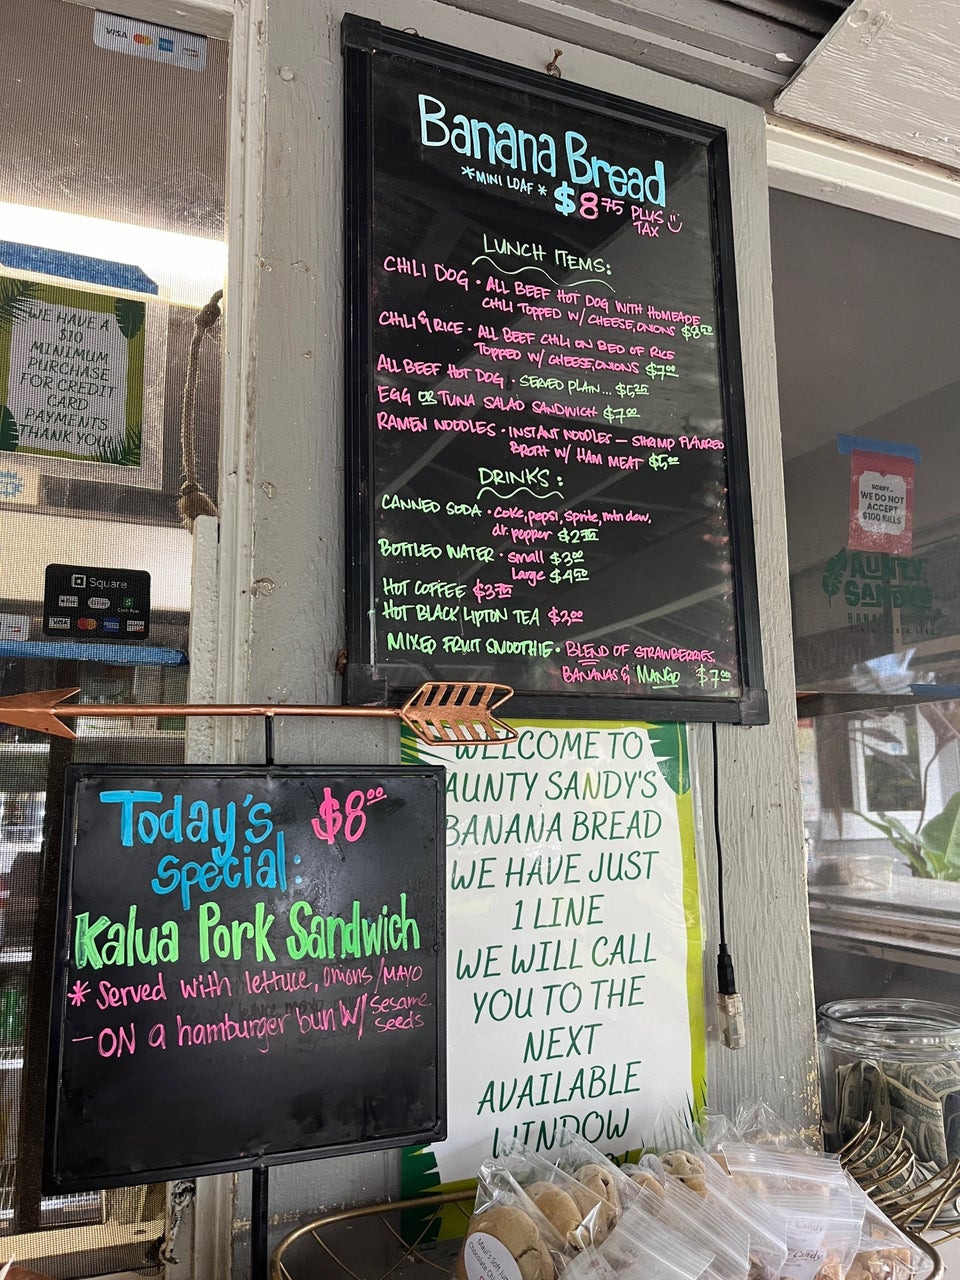 VISA
Banana Bread
*MINI LOAF* $8.75 PLUS
TAX
LUNCH ITEMS:
CHILI DOG • ALL BEEF HOT DOG WITH HOMEADE
CHILI TOPPED W/ CHEESE, ONIONS
CHILI & RICE • ALL BEEF CHILI ON BED OF RICE
TOPPED W/ CHEESE, ONIONS $7.00
ALL BEEF HOT DOG • SERVED PLAIN... $5.25
EGG OR TUNA SALAD SANDWICH $7.00
RAMEN NOODLES • INSTANT NOODLES — SHRIMP FLAVORED
BROTH W/ HAM MEAT $5.00
DRINKS:
CANNED SODA • coke, pepsi, sprite, mtn dew,
dr. pepper $2.75
BOTTLED WATER • small $3.00
large $4.50
HOT COFFEE $3.75
HOT BLACK LIPTON TEA $3.00
MIXED FRUIT SMOOTHIE • BLEND OF STRAWBERRIES,
BANANAS & MANGO $7.00
WE HAVE A
$10
MINIMUM
PURCHASE
FOR CREDIT
CARD
PAYMENTS
THANK YOU
Square
Today's $8.00
special:
Kalua Pork Sandwich
* Served with lettuce, onions/MAYO
- ON a hamburger bun W/ sesame
seeds
WELCOME TO
AUNTY SANDY'S
BANANA BREAD
WE HAVE JUST
1 LINE
WE WILL CALL
YOU TO THE
NEXT
AVAILABLE
WINDOW
SORRY...
WE DO NOT
ACCEPT
$100 BILLS
AUNTY
SANDY'S
Candy